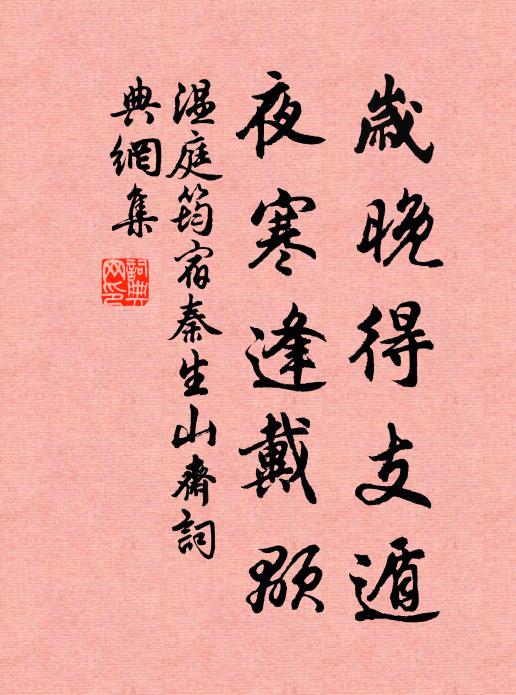 歲晚得支遁
夜寒逢戴顒
溫庭筠宿秦生山齋詞
典網集
詞典
网印